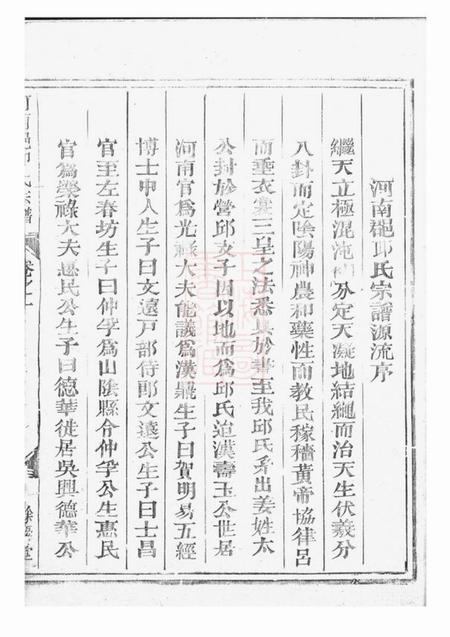 河南郡邱氏宗譜源流序
繼天立極混沌初分定天凝地結繩而治天生伏羲分
八卦而定陰陽神農和藥性而教民稼穡黃帝協律呂
而垂衣裳三皇之法悉具於書至我邱氏系出姜姓太
公封於營邱支子因以地而為邱氏迨漢壽玉公世居
河南官為光祿大夫能議為漢鼎生子曰賀明易五經
博士中人生子曰文遠戸部侍郎文遠公生子曰士昌
官至左春坊生子曰仲孚為山陰縣令仲孚公生惠民
官為榮祿大夫惠民公生子曰德華徙居吳興德華公
河南郡邱氏宗譜
卷之一